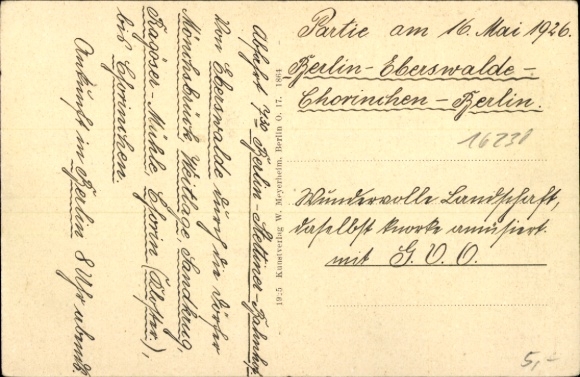 Partie am 16. Mai 1926.
Berlin-Eberswalde-
Chorinchen-Berlin.
16230
Wundervolle Landschaft,
daselbst knorke amüsiert.
mit G. V. O.
5,-
1925 Kunstverlag W. Meyerheim, Berlin O. 17. 1864
Abfahrt 7³⁰ Berlin-Stettiner-Bahnhof
Von Eberswalde durch die Dörfer
Mönchsbrück, Weitlage, Sandkrug,
Ragöser-Mühle, Chorin (Kloster),
bis Chorinchen.
Ankunft in Berlin 8 Uhr abends.